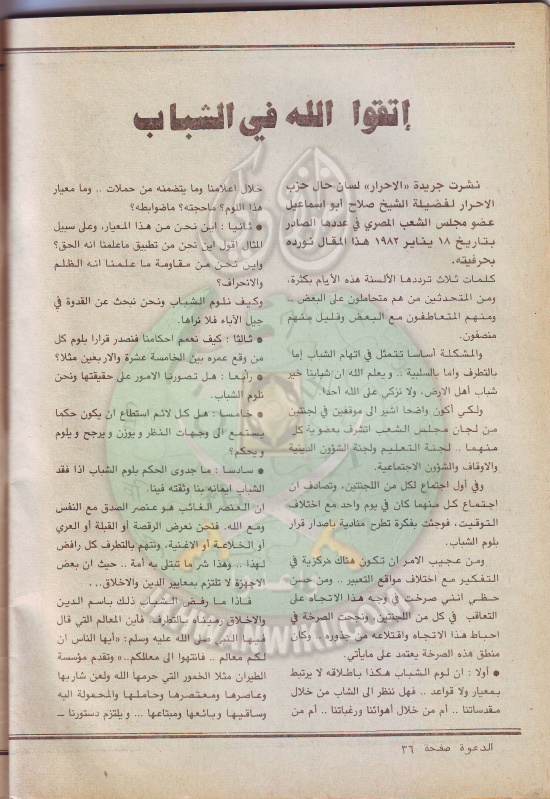 إتقوا الله في الشباب
نشرت جريدة «الاحرار» لسان حال حزب
الاحرار لفضيلة الشيخ صلاح أبو اسماعيل
عضو مجلس الشعب المصري في عددها الصادر
بتاريخ ١٨ يناير ١٩٨٢ هذا المقال نورده
بحرفيته.
كلمات ثلاث ترددها الألسنة هذه الأيام بكثرة،
ومن المتحدثين من هم متحاملون على البعض ..
ومنهم المتعاطفون مع البعض وقليل منهم
منصفون.
والمشكلة أساسا تتمثل في اتهام الشباب إما
بالتطرف واما بالسلبية .. ويعلم الله ان شبابنا خير
شباب أهل الارض، ولا نزكي على الله أحدا.
ولكي أكون واضحا اشير الى موقفين في لجنتين
من لجان مجلس الشعب اتشرف بعضوية كل
منهما .. لجنة التعليم ولجنة الشؤون الدينية
والاوقاف والشؤون الاجتماعية.
وفي أول اجتماع لكل من اللجنتين، وتصادف ان
اجتماع كل منهما كان في يوم واحد مع اختلاف
التوقيت، فوجئت بفكرة تطرح منادية باصدار قرار
بلوم الشباب.
ومن عجيب الامر ان تكون هناك مركزية في
التفكير مع اختلاف مواقع التعبير .. ومن حسن
حظي انني صرخت في وجه هذا الاتجاه على
التعاقب في كل من اللجنتين، ونجحت الصرخة في
احباط هذا الاتجاه واقتلاعه من جذوره .. وكان
منطق هذه الصرخة يعتمد على مايأتي.
● أولا : ان لوم الشباب هكذا باطلاقه لا يرتبط
بمعيار ولا قواعد .. فهل ننظر الى الشباب من خلال
مقدساتنا .. أم من خلال أهوائنا ورغباتنا .. أم من
خلال اعلامنا وما يتضمنه من حملات .. وما معيار
هذا اللوم؟ ماحجته؟ ماضوابطه؟
● ثانيا : اين نحن من هذا المعيار، وعلى سبيل
المثال اقول اين نحن من تطبيق ماعلمنا انه الحق؟
واين نحن من مقاومة ما علمنا انه الظلم
والانحراف؟
وكيف نلوم الشباب ونحن نبحث عن القدوة في
جيل الآباء فلا نراها.
● ثالثا : كيف نعمم احكامنا فنصدر قرارا يلوم كل
من وقع عمره بين الخامسة عشرة والاربعين مثلا؟
● رابعا : هل تصورنا الامور على حقيقتها ونحن
نلوم الشباب.
● خامسا : هل كل لائم استطاع ان يكون حكما
يستمع الى وجهات النظر ويوزن ويرجح ويلوم
ويحكم؟
● سادسا : ما جدوى الحكم بلوم الشباب اذا فقد
الشباب ايمانه بنا وثقته فينا.
ان العنصر الغائب هو عنصر الصدق مع النفس
ومع الله. فنحن نعرض الرقصة أو القبلة أو العري
أو الخلاعة أو الاغنية، ونتهم بالتطرف كل رافض
لهذا .. وهذا شر ما تبتلى به أمة .. حيث ان بعض
الاجهزة لا تلتزم بمعايير الدين والاخلاق..
فاذا ما رفض الشباب ذلك باسم الدين
والاخلاق رميناه بالتطرف. فأين المعالم التي قال
فيها النبي صلى الله عليه وسلم: «أيها الناس ان
لكم معالم .. فانتهوا الى معالكم..» وتقدم مؤسسة
الطيران مثلا الخمور التي حرمها الله ولعن شاربها
وعاصرها ومعتصرها وحاملها والمحمولة اليه
وساقيها وبائعها ومبتاعها ... ويلتزم دستورنا ـ
الدعوة صفحة ٣٦